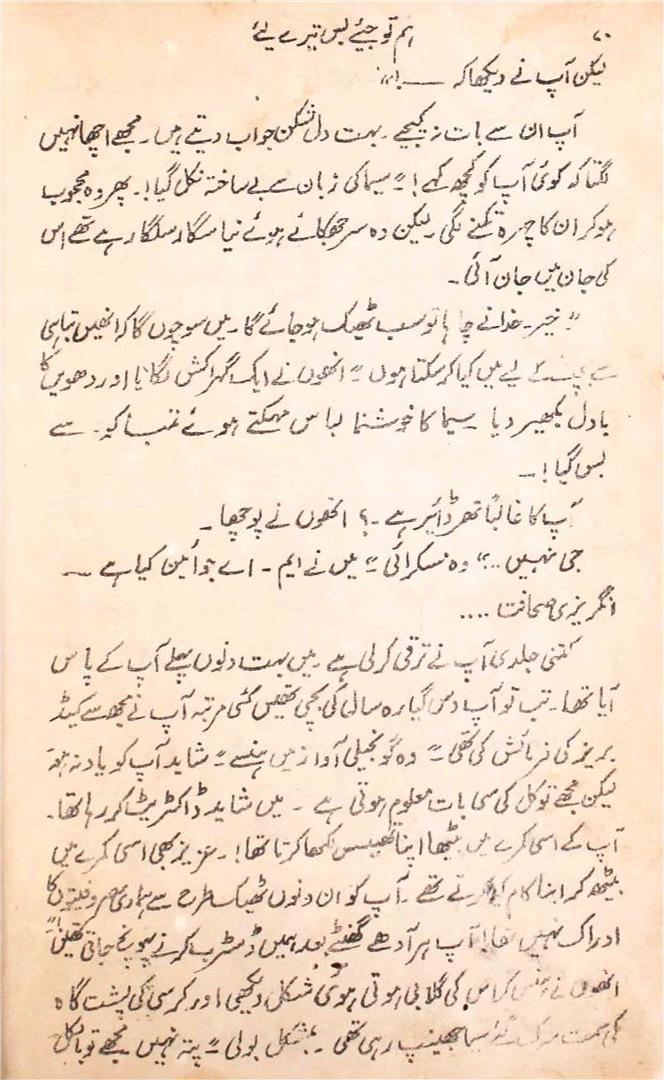 ۷۰ ہم تو جیے بس تیرے لیے
لیکن آپ نے دیکھا کہ ——!"
آپ ان سے بات نہ کیجیے۔ بہت دل شکن جواب دیتے ہیں۔ مجھے اچھا نہیں
لگتا کہ کوئی آپ کو کچھ کہے!" سیما کی زبان سے بے ساختہ نکل گیا!۔ پھر وہ محجوب
ہو کر ان کا چہرہ تکنے لگی۔ لیکن وہ سر جھکائے ہوئے نیا سگار سلگا رہے تھے اس
کی جان میں جان آئی۔
"خیر۔ خدا نے چاہا تو سب ٹھیک ہو جائے گا۔ میں سوچوں گا کہ انھیں تباہی
سے بچانے کے لیے میں کیا کر سکتا ہوں" انھوں نے ایک گہرا کش لگایا اور دھویں کا
بادل بکھیر دیا۔ سیما کا خوشنما لباس مہکتے ہوئے تمباکو سے
بس گیا!۔
آپ کا غالباً تھرڈ ائیر ہے۔؟ انھوں نے پوچھا۔
جی نہیں .." وہ مسکرائی" میں نے ایم۔ اے جوائین کیا ہے —
انگریزی صحافت ....
کتنی جلدی آپ نے ترقی کر لی ہے۔ میں بہت دنوں پہلے آپ کے پاس
آیا تھا۔ تب تو آپ دس گیارہ سال کی بچی تھیں کئی مرتبہ آپ نے مجھ سے کیڈ
بریز کی فرمائش کی تھی۔" وہ گونجیلی آواز میں ہنسے" شاید آپ کو یاد نہ ہو
لیکن مجھے تو کل کی سی بات معلوم ہوتی ہے۔ میں شاید ڈاکٹریٹ کر رہا تھا۔
آپ کے اسی کمرے میں بیٹھا اپنا تھیسس لکھا کرتا تھا!۔ عزیز بھی اسی کمرے میں
بیٹھ کر اپنا کام کیا کرتے تھے۔ آپ کو ان دنوں ٹھیک طرح سے ہماری مصروفیتوں کا
ادراک نہیں تھا! آپ ہر آدھے گھنٹے بعد ہمیں ڈسٹرب کرنے پہونچ جاتی تھیں"
انھوں نے اس کی گلابی ہوتی ہوئی شکل دیکھی اور کرسی کی پشت گاہ
کی سمت سیما جھینپ رہی تھی۔ بمشکل بولی" پتہ نہیں۔ مجھے تو بالکل